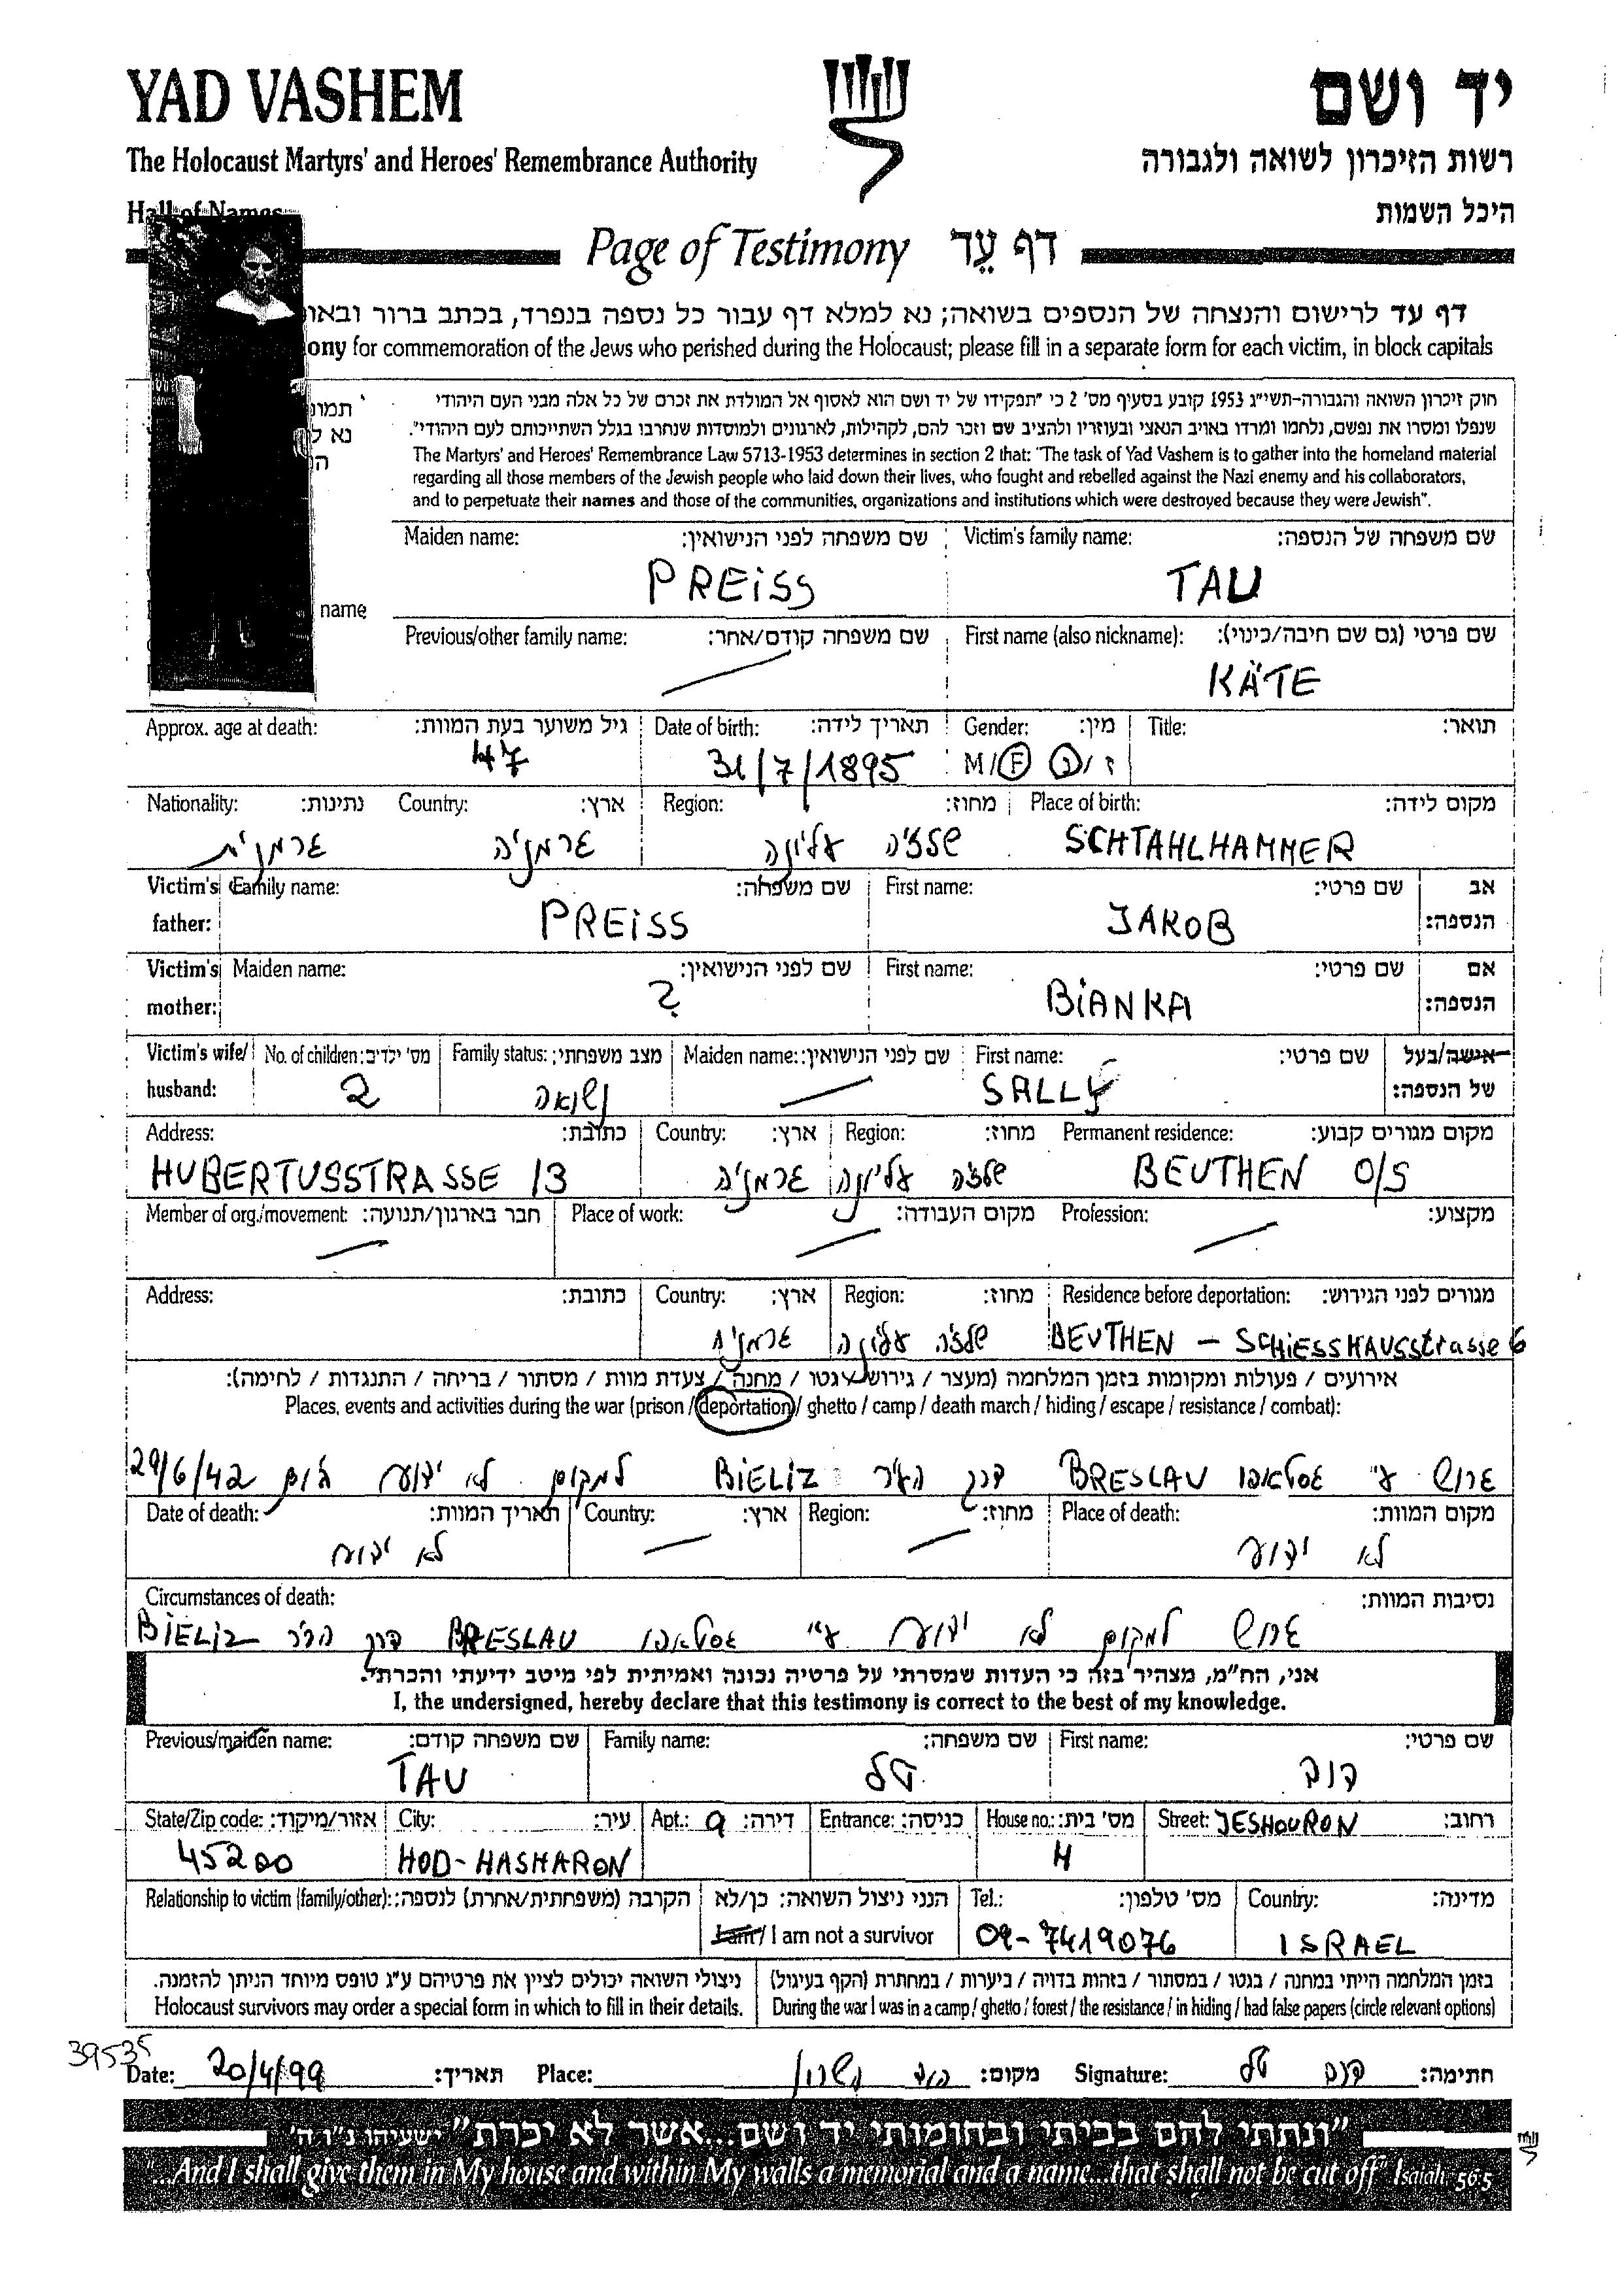 YAD VASHEM
יד ושם
The Holocaust Martyrs' and Heroes' Remembrance Authority
רשות הזיכרון לשואה ולגבורה
Hall of Names
היכל השמות
Page of Testimony דף עֵד
דף עד לרישום והנצחה של הנספים בשואה; נא למלא דף עבור כל נספה בנפרד, בכתב ברור
for commemoration of the Jews who perished during the Holocaust; please fill in a separate form for each victim, in block capitals
חוק זיכרון השואה והגבורה-תשי"ג 1953 קובע בסעיף מס' 2 כי "תפקידו של יד ושם הוא לאסוף אל המולדת את זכרם של כל אלה מבני העם היהודי
שנפלו ומסרו את נפשם, נלחמו ומרדו באויב הנאצי ובעוזריו ולהציב שם וזכר להם, לקהילות, לארגונים ולמוסדות שנחרבו בגלל השתייכותם לעם היהודי".
The Martyrs' and Heroes' Remembrance Law 5713-1953 determines in section 2 that: "The task of Yad Vashem is to gather into the homeland material
regarding all those members of the Jewish people who laid down their lives, who fought and rebelled against the Nazi enemy and his collaborators,
and to perpetuate their names and those of the communities, organizations and institutions which were destroyed because they were Jewish".
Maiden name: שם משפחה לפני הנישואין: Victim's family name: שם משפחה של הנספה:
PREiSS TAU
name
Previous/other family name: שם משפחה קודם/אחר: First name (also nickname): שם פרטי (גם שם חיבה/כינוי):
KÄTE
Approx. age at death: גיל משוער בעת המוות: Date of birth: תאריך לידה: Gender: מין: Title: תואר:
47 31/7/1895 M/F ז/נ
Nationality: נתינות: Country: ארץ: Region: מחוז: Place of birth: מקום לידה:
גרמנית גרמניה שלזיה עליונה SCHTAHLHAMMER
Victim's father: Family name: שם משפחה: First name: שם פרטי: אב הנספה:
PREiSS JAKOB
Victim's mother: Maiden name: שם לפני הנישואין: First name: שם פרטי: אם הנספה:
? BiANKA
Victim's wife/ husband: No. of children: מס' ילדים: Family status: מצב משפחתי: Maiden name: שם לפני הנישואין: First name: שם פרטי: אישה/בעל של הנספה:
2 נשואה SALLY
Address: כתובת: Country: ארץ: Region: מחוז: Permanent residence: מקום מגורים קבוע:
HUBERTUSSTRASSE 13 גרמניה שלזיה עליונה BEUTHEN O/S
Member of org./movement: חבר בארגון/תנועה: Place of work: מקום העבודה: Profession: מקצוע:
Address: כתובת: Country: ארץ: Region: מחוז: Residence before deportation: מגורים לפני הגירוש:
גרמניה שלזיה עליונה BEUTHEN - SCHiESSHAUSStrasse 6
אירועים / פעולות ומקומות בזמן המלחמה (מעצר / גירוש / גטו / מחנה / צעדת מוות / מסתור / בריחה / התנגדות / לחימה):
Places, events and activities during the war (prison / deportation / ghetto / camp / death march / hiding / escape / resistance / combat):
גרוש ע"י גסטאפו BRESLAU דרך העיר BiELiZ למקום לא ידוע ביום 29/6/42
Date of death: תאריך המוות: Country: ארץ: Region: מחוז: Place of death: מקום המוות:
לא ידוע לא ידוע
Circumstances of death: נסיבות המוות:
גרוש למקום לא ידוע ע"י גסטאפו BRESLAU דרך העיר BiELiZ
אני, הח"מ, מצהיר בזה כי העדות שמסרתי על פרטיה נכונה ואמיתית לפי מיטב ידיעתי והכרתי.
I, the undersigned, hereby declare that this testimony is correct to the best of my knowledge.
Previous/maiden name: שם משפחה קודם: Family name: שם משפחה: First name: שם פרטי:
TAU טל דוב
State/Zip code: אזור/מיקוד: City: עיר: Apt.: 9 דירה: Entrance: כניסה: House no.: מס' בית: Street: JESHOURON רחוב:
45200 HOD-HASHARON 4
Relationship to victim (family/other): הקרבה (משפחתית/אחרת) לנספה: הנני ניצול השואה: כן/לא Tel.: מס' טלפון: Country: מדינה:
I am / I am not a survivor 09-7419076 ISRAEL
ניצולי השואה יכולים לציין את פרטיהם ע"ג טופס מיוחד הניתן להזמנה.
Holocaust survivors may order a special form in which to fill in their details.
בזמן המלחמה הייתי במחנה / בגטו / במסתור / בזהות בדויה / ביערות / במחתרת (הקף בעיגול)
During the war I was in a camp / ghetto / forest / the resistance / in hiding / had false papers (circle relevant options)
39535
Date: 20/4/99 תאריך: Place: הוד השרון מקום: Signature: דוב טל חתימה:
"ונתתי להם בביתי ובחומותי יד ושם...אשר לא יכרת" ישעיהו נ"ו ה'
"...And I shall give them in My house and within My walls a memorial and a name...that shall not be cut off" Isaiah 56:5